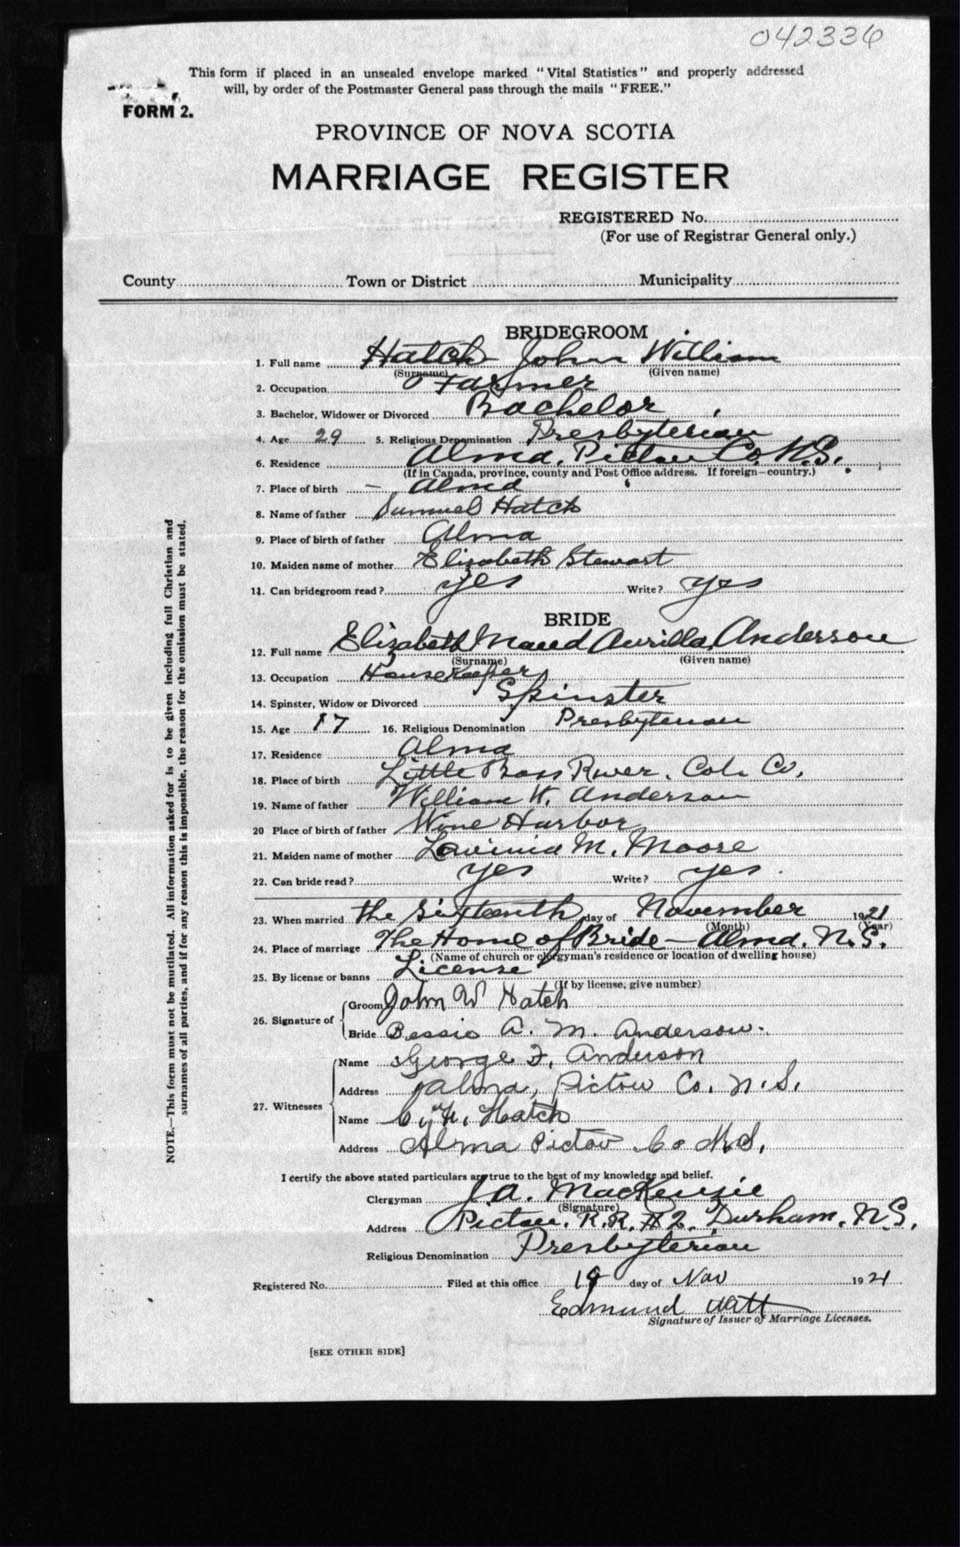 042336
This form if placed in an unsealed envelope marked "Vital Statistics" and properly addressed
will, by order of the Postmaster General pass through the mails "FREE."
FORM 2.
PROVINCE OF NOVA SCOTIA
MARRIAGE REGISTER
REGISTERED No.
(For use of Registrar General only.)
County Town or District Municipality
BRIDEGROOM
1. Full name Hatch John William
(Surname) (Given name)
2. Occupation Farmer
3. Bachelor, Widower or Divorced Bachelor
4. Age 29 5. Religious Denomination Presbyterian
6. Residence Alma, Pictou Co. N.S.
(If in Canada, province, county and Post Office address. If foreign—country.)
7. Place of birth — Alma
8. Name of father Samuel Hatch
9. Place of birth of father Alma
10. Maiden name of mother Elizabeth Stewart
11. Can bridegroom read? yes Write? yes
BRIDE
12. Full name Elizabeth Maud Aurilla Anderson
(Surname) (Given name)
13. Occupation Housekeeper
14. Spinster, Widow or Divorced Spinster
15. Age 17 16. Religious Denomination Presbyterian
17. Residence Alma
18. Place of birth Little Bass River, Col. Co.
19. Name of father William H. Anderson
20 Place of birth of father Wine Harbor
21. Maiden name of mother Lavinia M. Moore
22. Can bride read? yes Write? yes
23. When married the Sixteenth day of November 1921
(Month) (Year)
24. Place of marriage The Home of Bride — Alma. N.S.
(Name of church or clergyman's residence or location of dwelling house)
25. By license or banns License
(If by license, give number)
26. Signature of Groom John W Hatch
Bride Bessie A. M. Anderson.
27. Witnesses Name George F. Anderson
Address Alma, Pictou Co. N.S.
Name Hatch
Address Alma Pictou Co N.S.
I certify the above stated particulars are true to the best of my knowledge and belief.
Clergyman J. A. MacKenzie
(Signature)
Address Pictou, R.R. #2, Durham, N.S.
Religious Denomination Presbyterian
Registered No. Filed at this office 19 day of Nov 1921
Edmund Watt
Signature of Issuer of Marriage Licenses.
[SEE OTHER SIDE]
NOTE.—This form must not be mutilated. All information asked for is to be given including full Christian and
surnames of all parties, and if for any reason this is impossible, the reason for the omission must be stated.